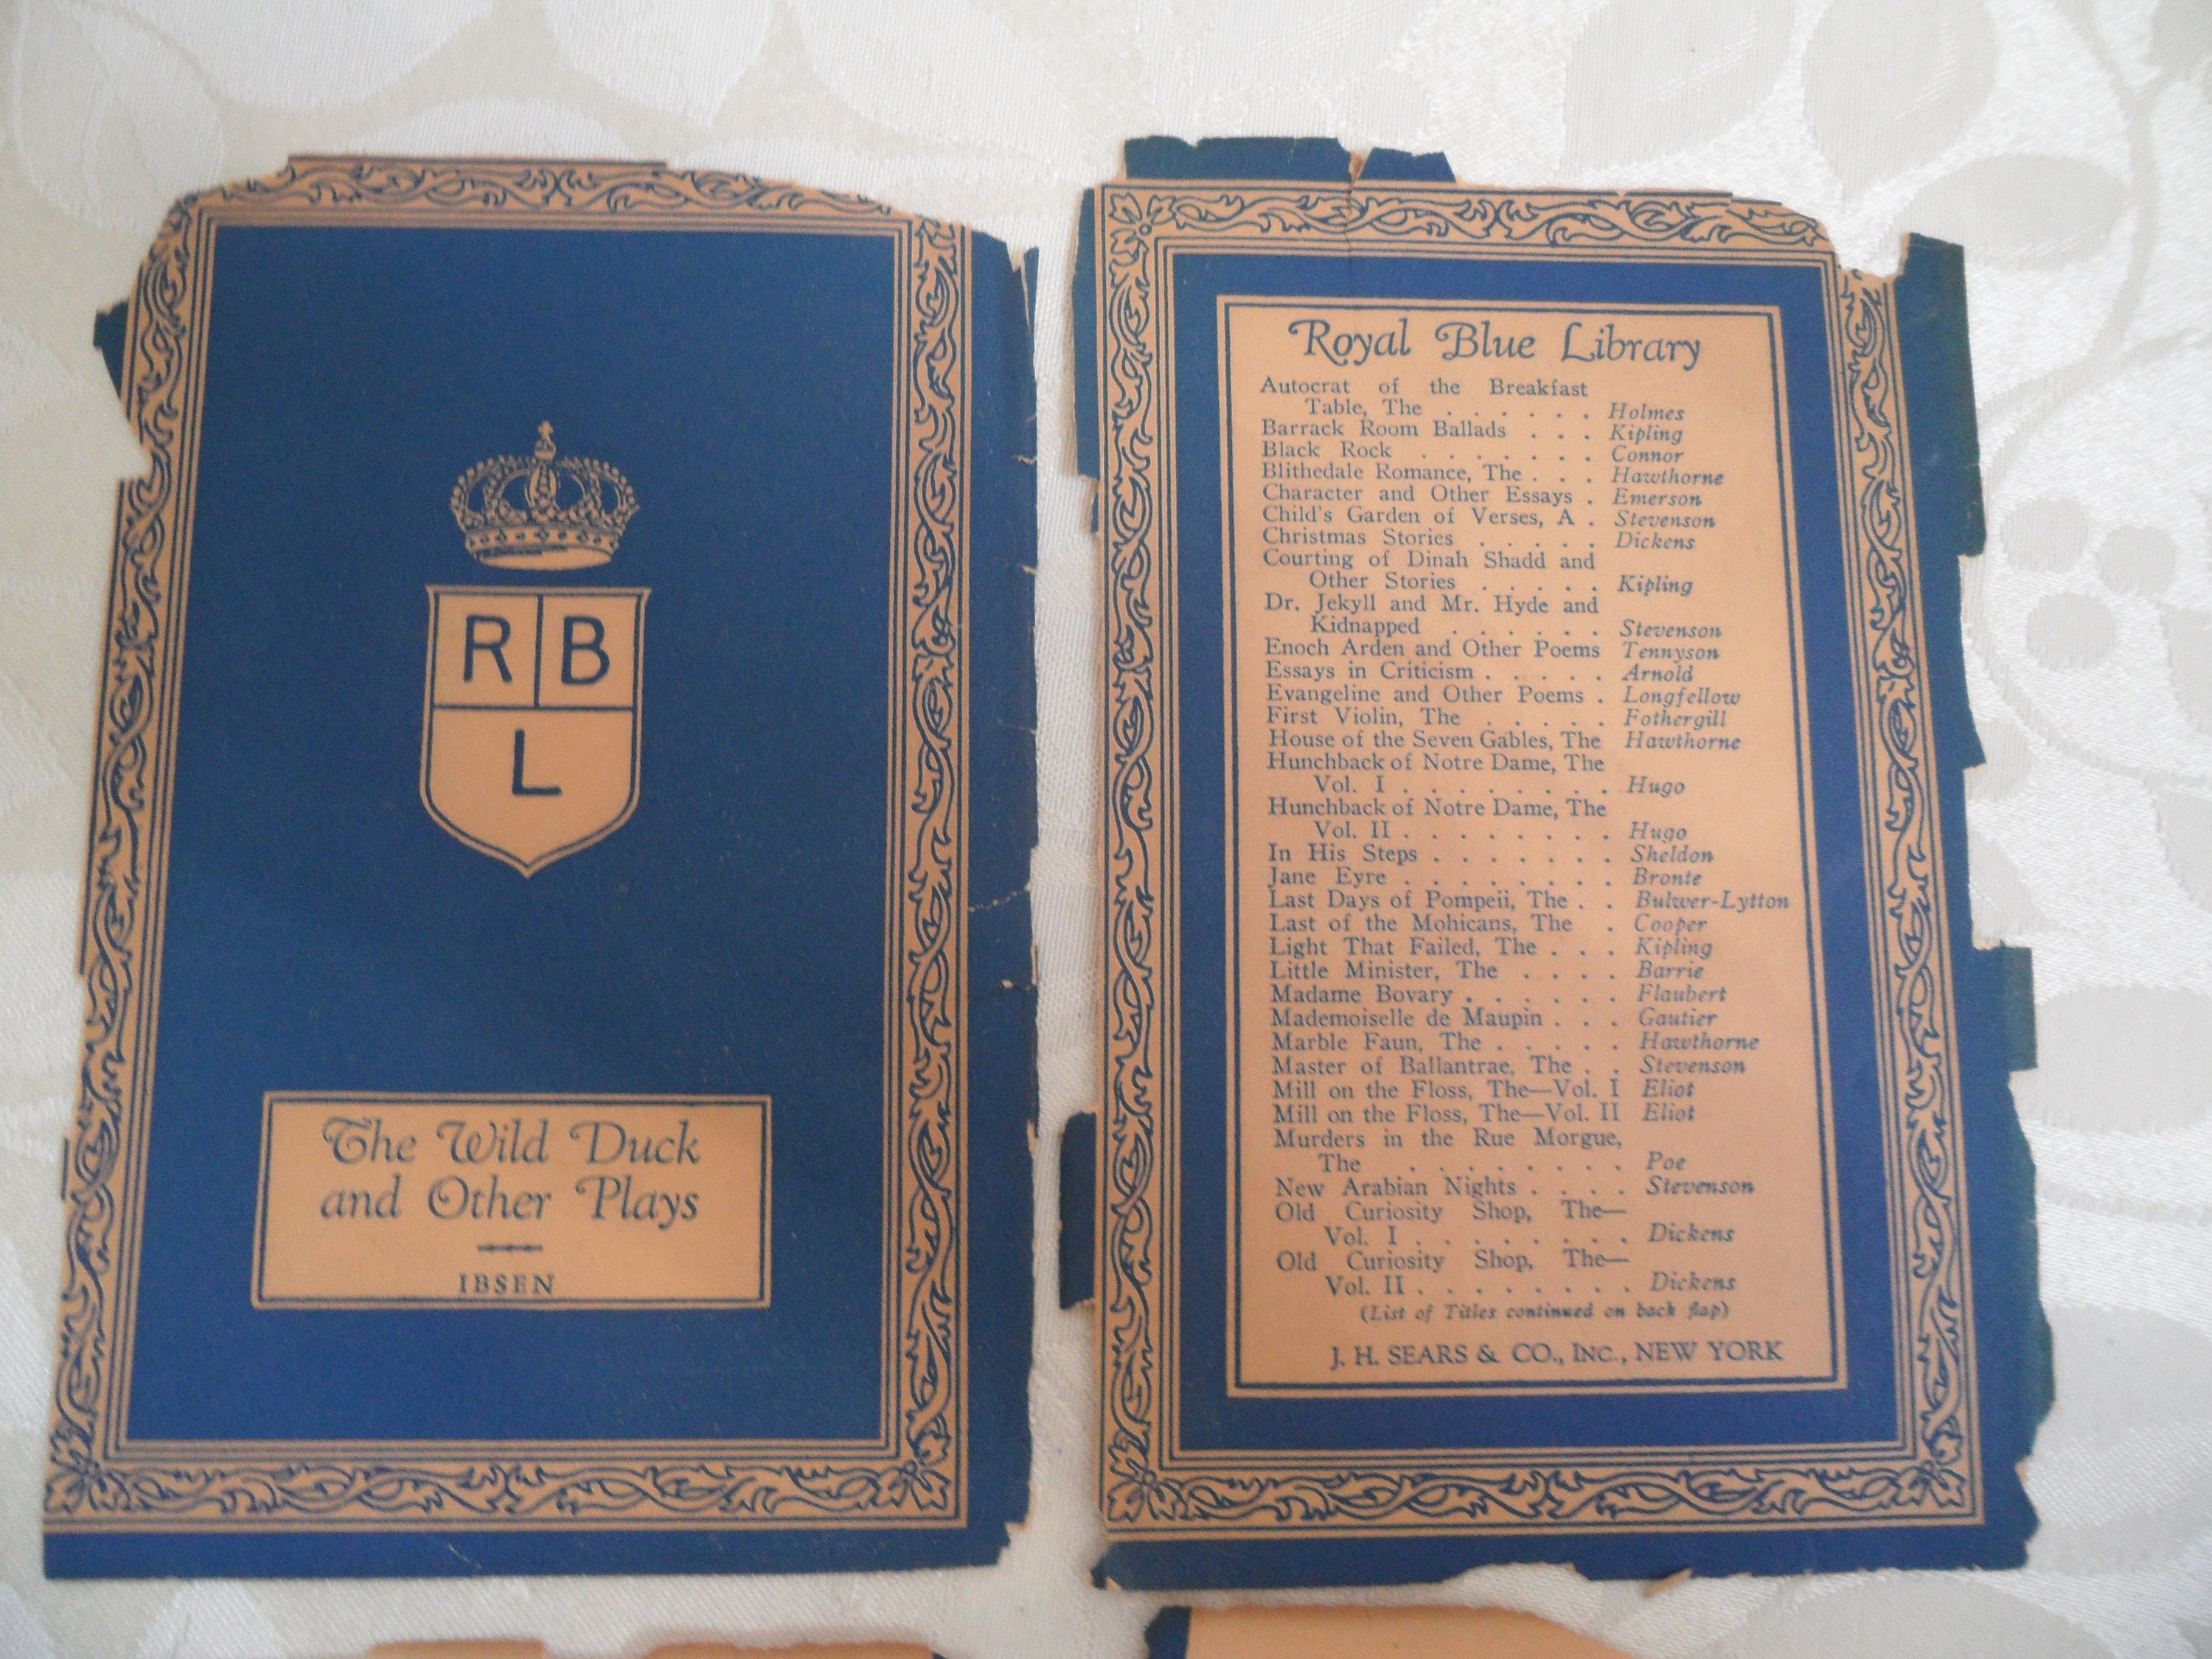 R B
L
The Wild Duck
and Other Plays
IBSEN
Royal Blue Library
Autocrat of the Breakfast
Table, The . . . . . . Holmes
Barrack Room Ballads . . . Kipling
Black Rock . . . . . . . Connor
Blithedale Romance, The . . . Hawthorne
Character and Other Essays . Emerson
Child's Garden of Verses, A . Stevenson
Christmas Stories . . . . . Dickens
Courting of Dinah Shadd and
Other Stories . . . . . Kipling
Dr. Jekyll and Mr. Hyde and
Kidnapped . . . . . . Stevenson
Enoch Arden and Other Poems Tennyson
Essays in Criticism . . . . . Arnold
Evangeline and Other Poems . Longfellow
First Violin, The . . . . . Fothergill
House of the Seven Gables, The Hawthorne
Hunchback of Notre Dame, The
Vol. I . . . . . . . . Hugo
Hunchback of Notre Dame, The
Vol. II . . . . . . . Hugo
In His Steps . . . . . . . Sheldon
Jane Eyre . . . . . . . . Bronte
Last Days of Pompeii, The . . Bulwer-Lytton
Last of the Mohicans, The . Cooper
Light That Failed, The . . . Kipling
Little Minister, The . . . . Barrie
Madame Bovary . . . . . . Flaubert
Mademoiselle de Maupin . . . Gautier
Marble Faun, The . . . . . Hawthorne
Master of Ballantrae, The . . Stevenson
Mill on the Floss, The—Vol. I Eliot
Mill on the Floss, The—Vol. II Eliot
Murders in the Rue Morgue,
The . . . . . . . . Poe
New Arabian Nights . . . . Stevenson
Old Curiosity Shop, The—
Vol. I . . . . . . . . Dickens
Old Curiosity Shop, The—
Vol. II . . . . . . . . Dickens
(List of Titles continued on back flap)
J. H. SEARS & CO., INC., NEW YORK